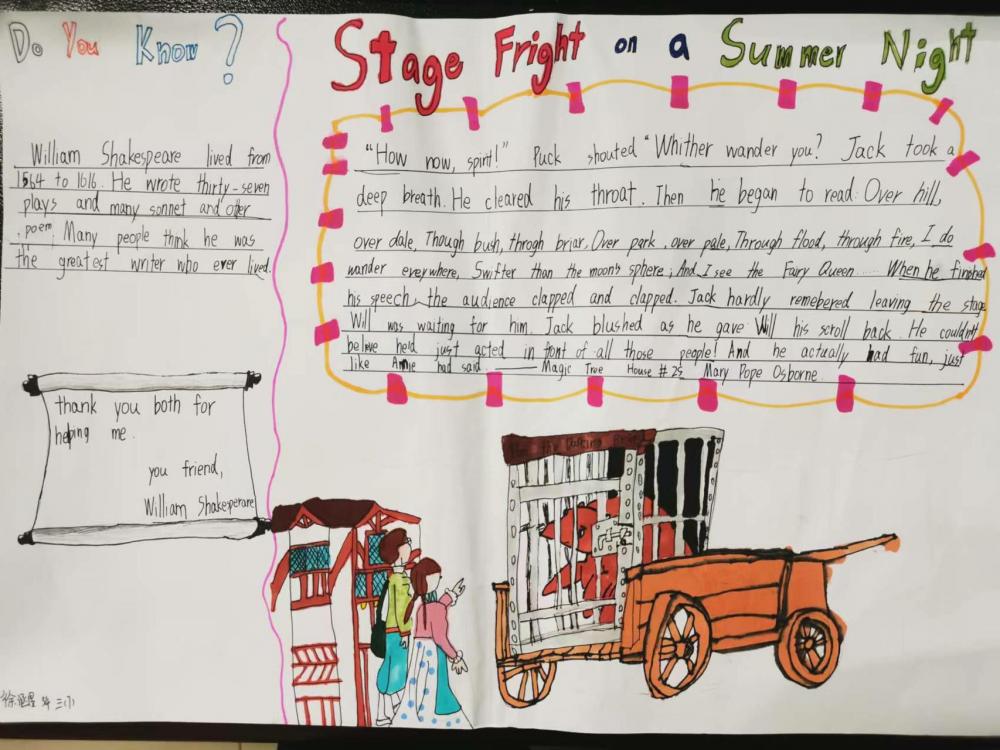 Do You Know?
William Shakespeare lived from
1564 to 1616. He wrote thirty-seven
plays and many sonnet and other
poem. Many people think he was
the greatest writer who ever lived.
thank you both for
helping me.
you friend,
William Shakesperare
Stage Fright on a Summer Night
"How now, spirit!" Puck shouted "Whither wander you? Jack took a
deep breath. He cleared his throat. Then he began to read: Over hill,
over dale, Though bush, throgh briar, Over park, over pale, Through flood, through fire, I do
wander everywhere, Swifter than the moon's sphere; And I see the Fairy Queen...... When he finished
his speech, the audience clapped and clapped. Jack hardly remebered leaving the stage
Will was waiting for him. Jack blushed as he gave Will his scroll back. He couldn't
believe he'd just acted in font of all those people! And he actually had fun, just
like Annie had said. —— Magic Tree House #25 Mary Pope Osborne
三(1)